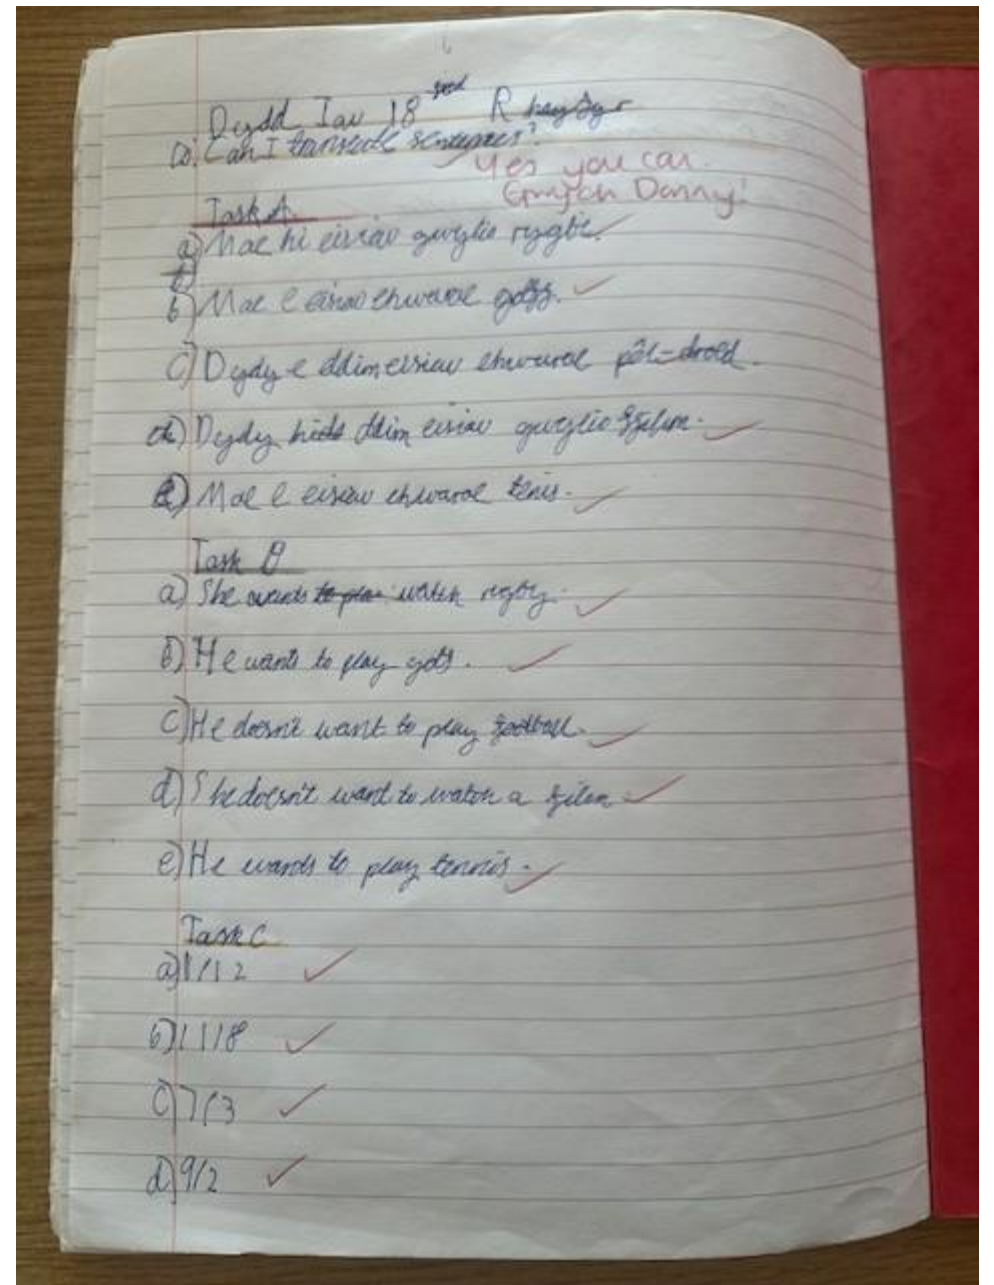 Dydd Iau 18 Rhagfyr
Can I translate sentences?
Yes you can.
Danny!
Task A
a) Mae hi eisiau gwylio rygbi.
b) Mae e eisiau chwarae golff.
c) Dydy e ddim eisiau chwarae pêl-droed.
ch) Dydy hi ddim eisiau gwylio ffilm.
d) Mae e eisiau chwarae tenis.
Task B
a) She wants watch rugby.
b) He wants to play golf.
c) He doesn't want to play football.
d) She doesn't want to watch a film.
e) He wants to play tennis.
Task C
a) 1/12
b) 11/8
c) 7/3
d) 9/2